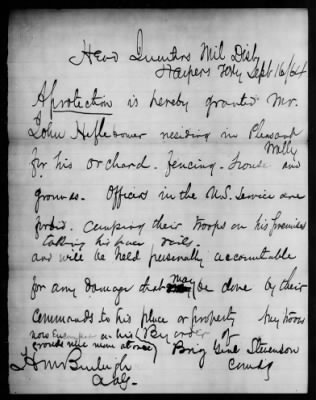 Head Quarters Mil Dist
Harpers Ferry Sept 16/64
A protection is hereby granted Mr.
John Heflebower residing in Pleasant
Vally
for his orchard. fencing. house and
grounds. Officers in the U.S. Service are
forbid. camping their troops on his premises
taking his fence rails.
and will be held personally accountable
for any damage that may be done by their
Commands to his place or property Any troops
now Encamped on his
grounds will move at once
By order of
Brig Genl Stevenson
Comdg
A.A.G.